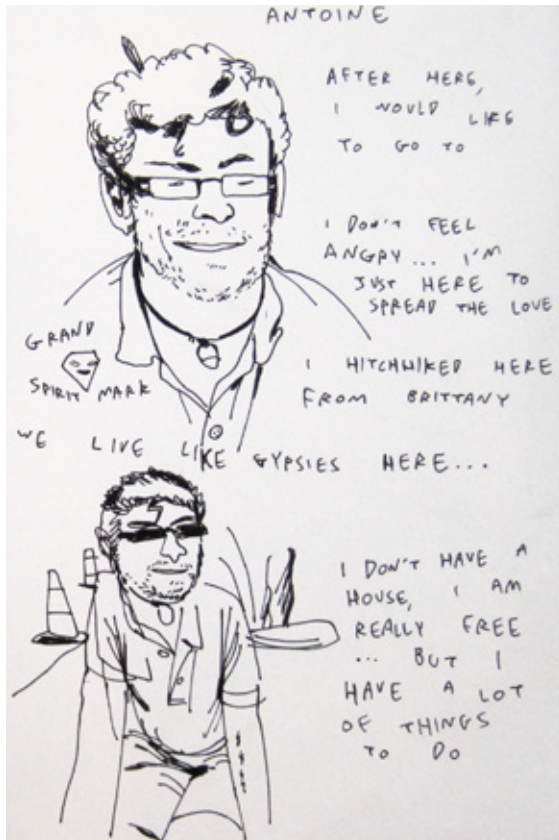 ANTOINE
AFTER HERE,
I WOULD LIKE
TO GO TO
I DON'T FEEL
ANGRY... I'M
JUST HERE TO
SPREAD THE LOVE
GRAND
SPIRIT MARK
I HITCHHIKED HERE
FROM BRITTANY
WE LIVE LIKE GYPSIES HERE...
I DON'T HAVE A
HOUSE, I AM
REALLY FREE
... BUT I
HAVE A LOT
OF THINGS
TO DO